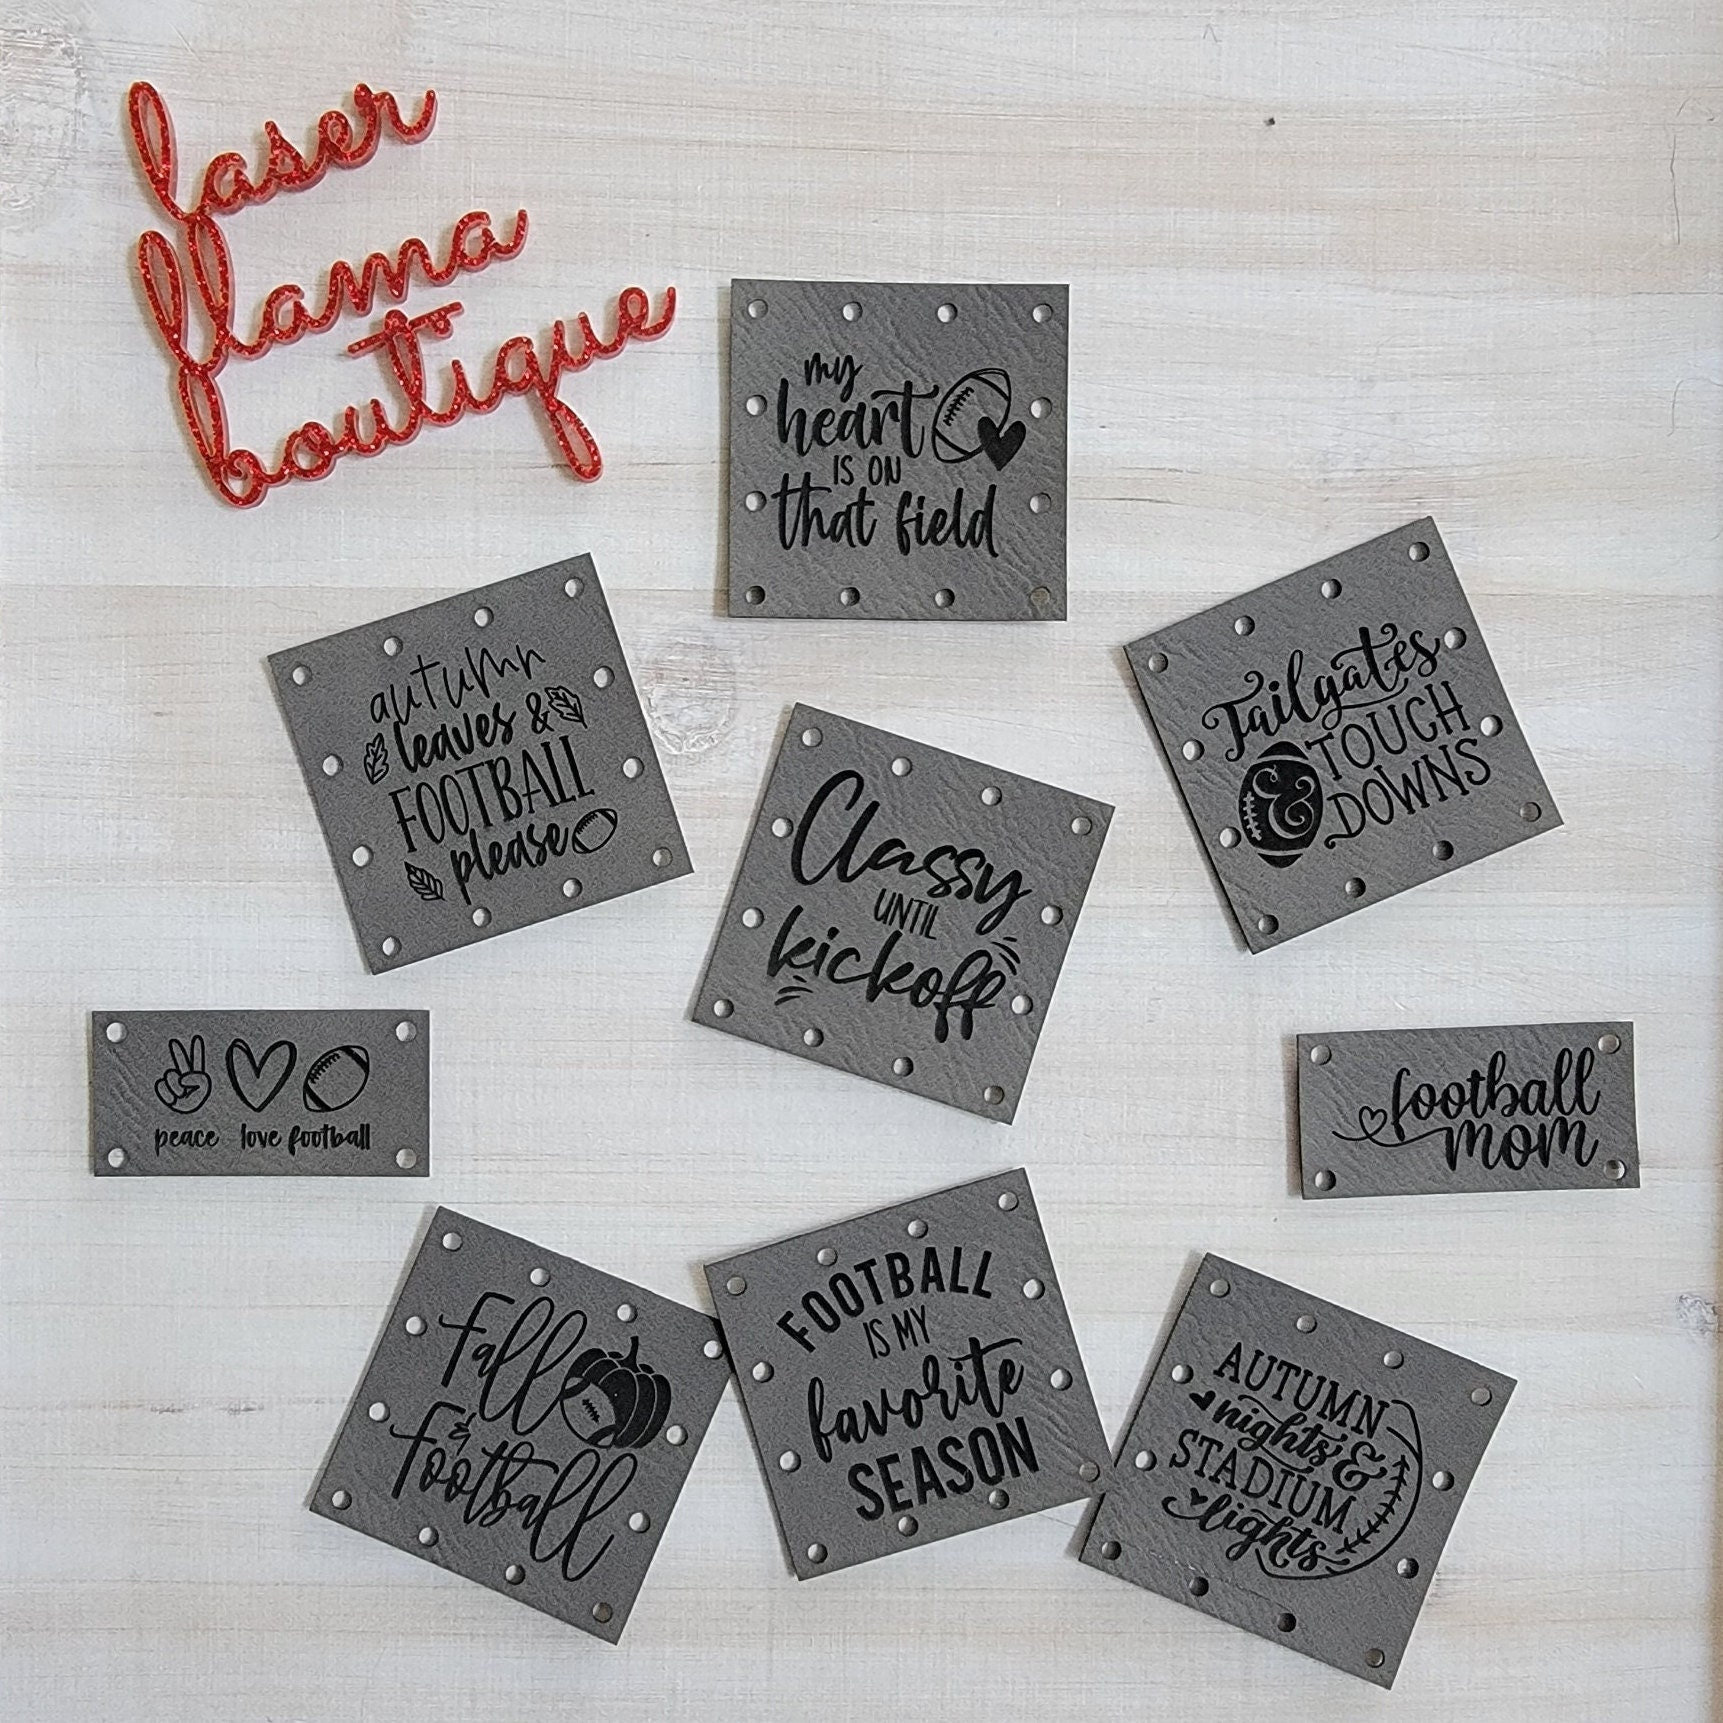 laser
llama
boutique
my
heart
IS ON
that field
autumn
leaves &
FOOTBALL
please
Tailgates
& TOUCH
DOWNS
Classy
UNTIL
kickoff
peace love football
football
mom
Fall
&
Football
FOOTBALL
IS MY
favorite
SEASON
AUTUMN
nights &
STADIUM
lights